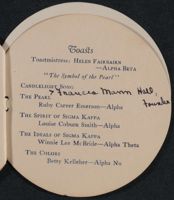 Toasts
Toastmistress: Helen Fairbairn
—Alpha Beta
"The Symbol of the Pearl"
Candlelight Song
The Pearl Frances Mann Hall,
Founder
Ruby Carver Emerson—Alpha
The Spirit of Sigma Kappa
Louise Coburn Smith—Alpha
The Ideals of Sigma Kappa
Winnie Lee McBride—Alpha Theta
The Colors
Betty Kelleher—Alpha Nu